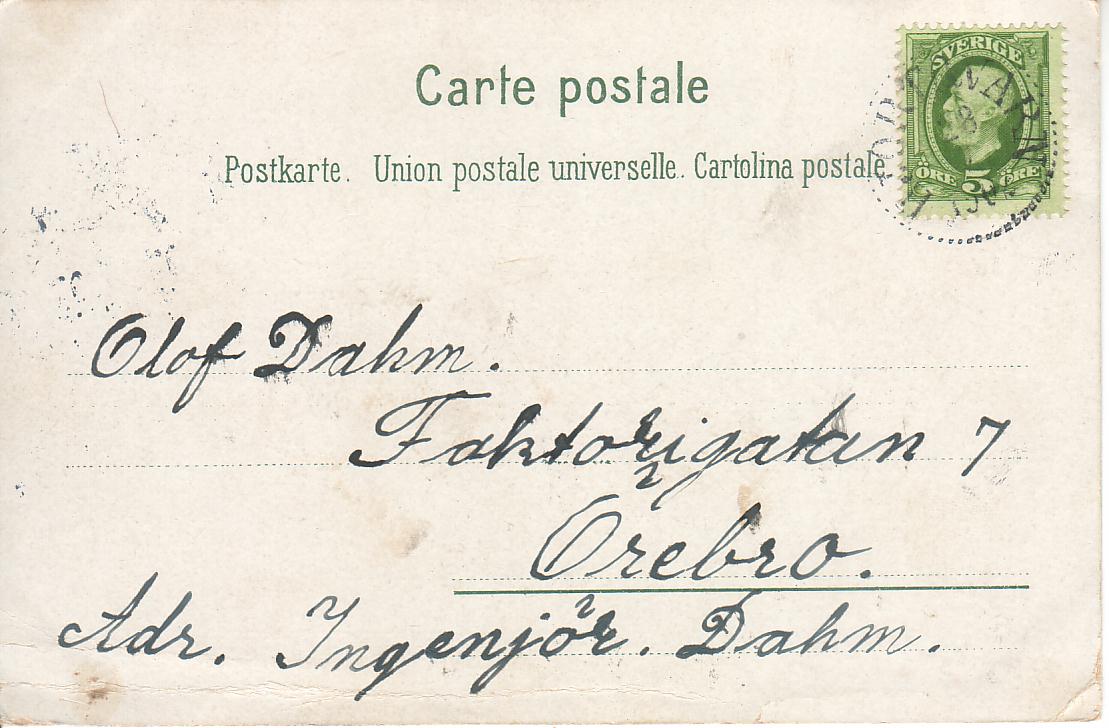 Carte postale
Postkarte. Union postale universelle. Cartolina postale
SVERIGE
ÖRE 5 ÖRE
Olof Dahm.
Faktorigatan 7
Örebro.
Adr. Ingenjör. Dahm.